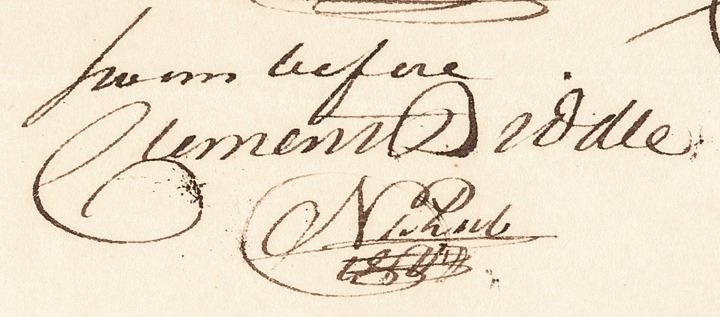 sworn before
Clement Biddle
Not Pub